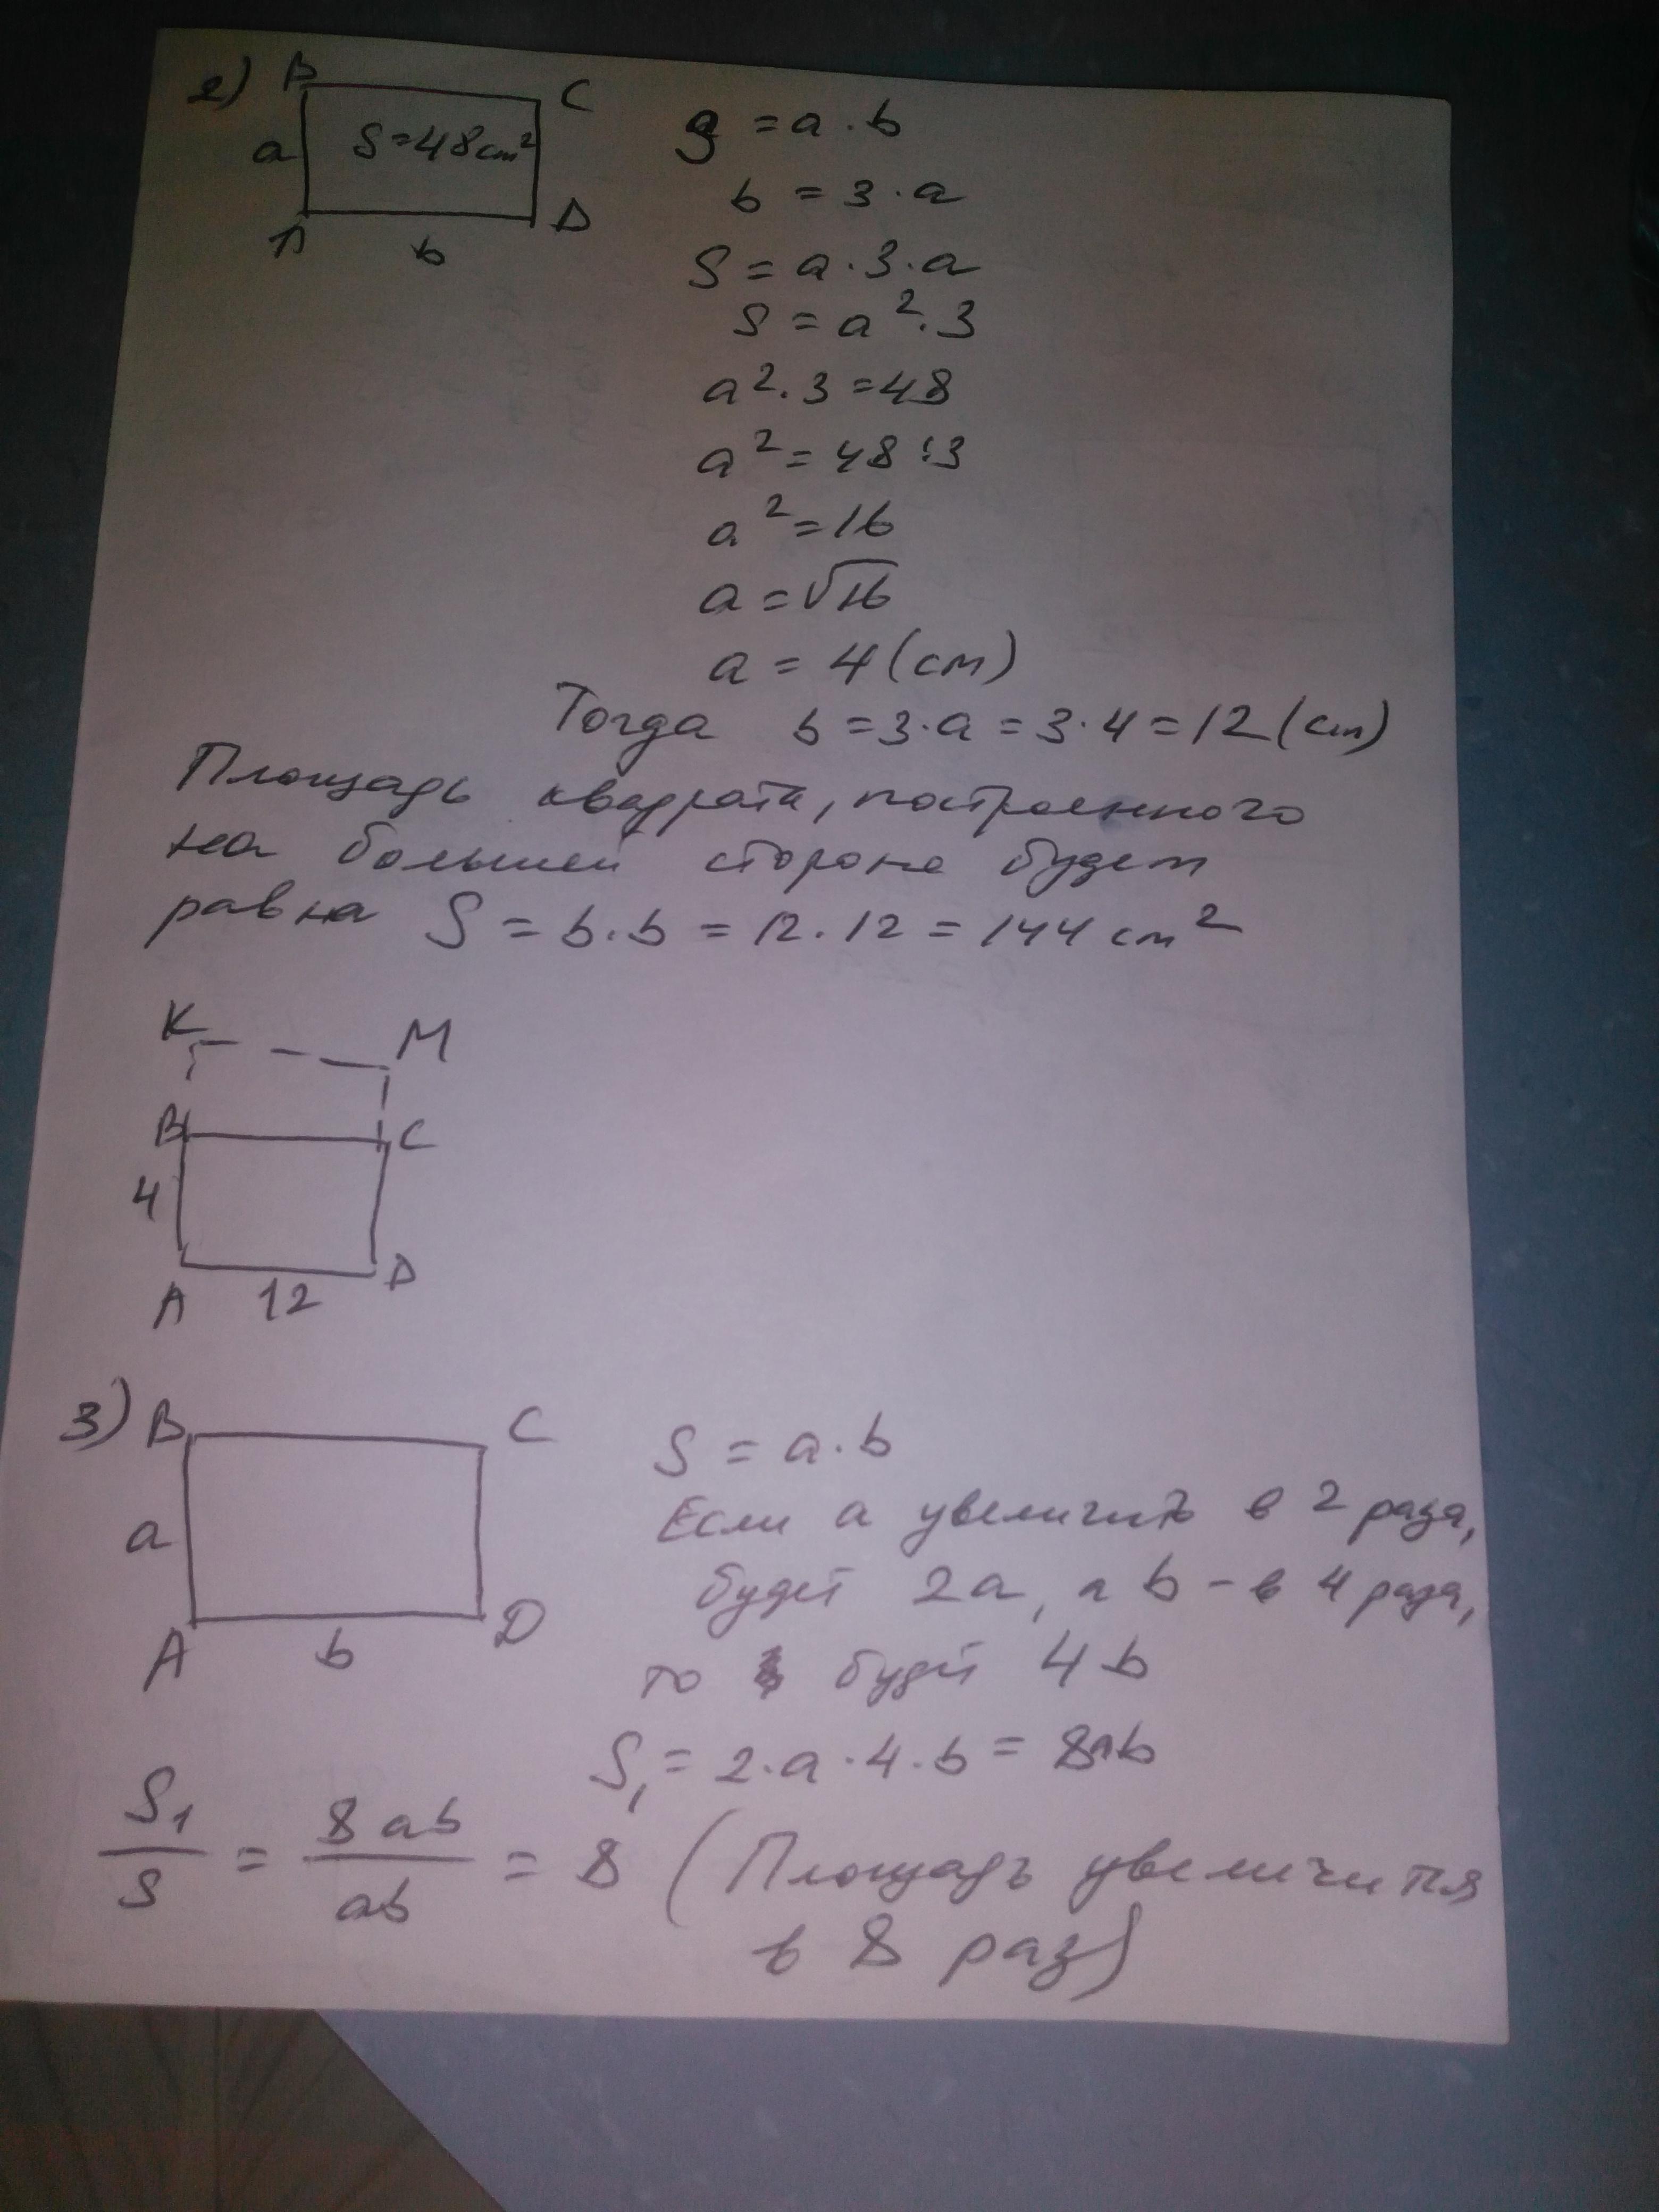 2) B C
a S=48 см² S = a · b
A b D b = 3 · a
S = a · 3 · a
S = a² · 3
a² · 3 = 48
a² = 48 : 3
a² = 16
a = √16
a = 4 (см)
Тогда b = 3·a = 3·4 = 12 (см)
Площадь квадрата, построенного
на большей стороне будет
равна S = b·b = 12·12 = 144 см²
K M
B C
4
A 12 D
3) B C S = a · b
a Если a увеличить в 2 раза,
будет 2a, а b - в 4 раза,
A b D то будет 4b
S₁ = 2·a·4·b = 8ab
S₁/S = 8ab/ab = 8 (Площадь увеличится
в 8 раз)